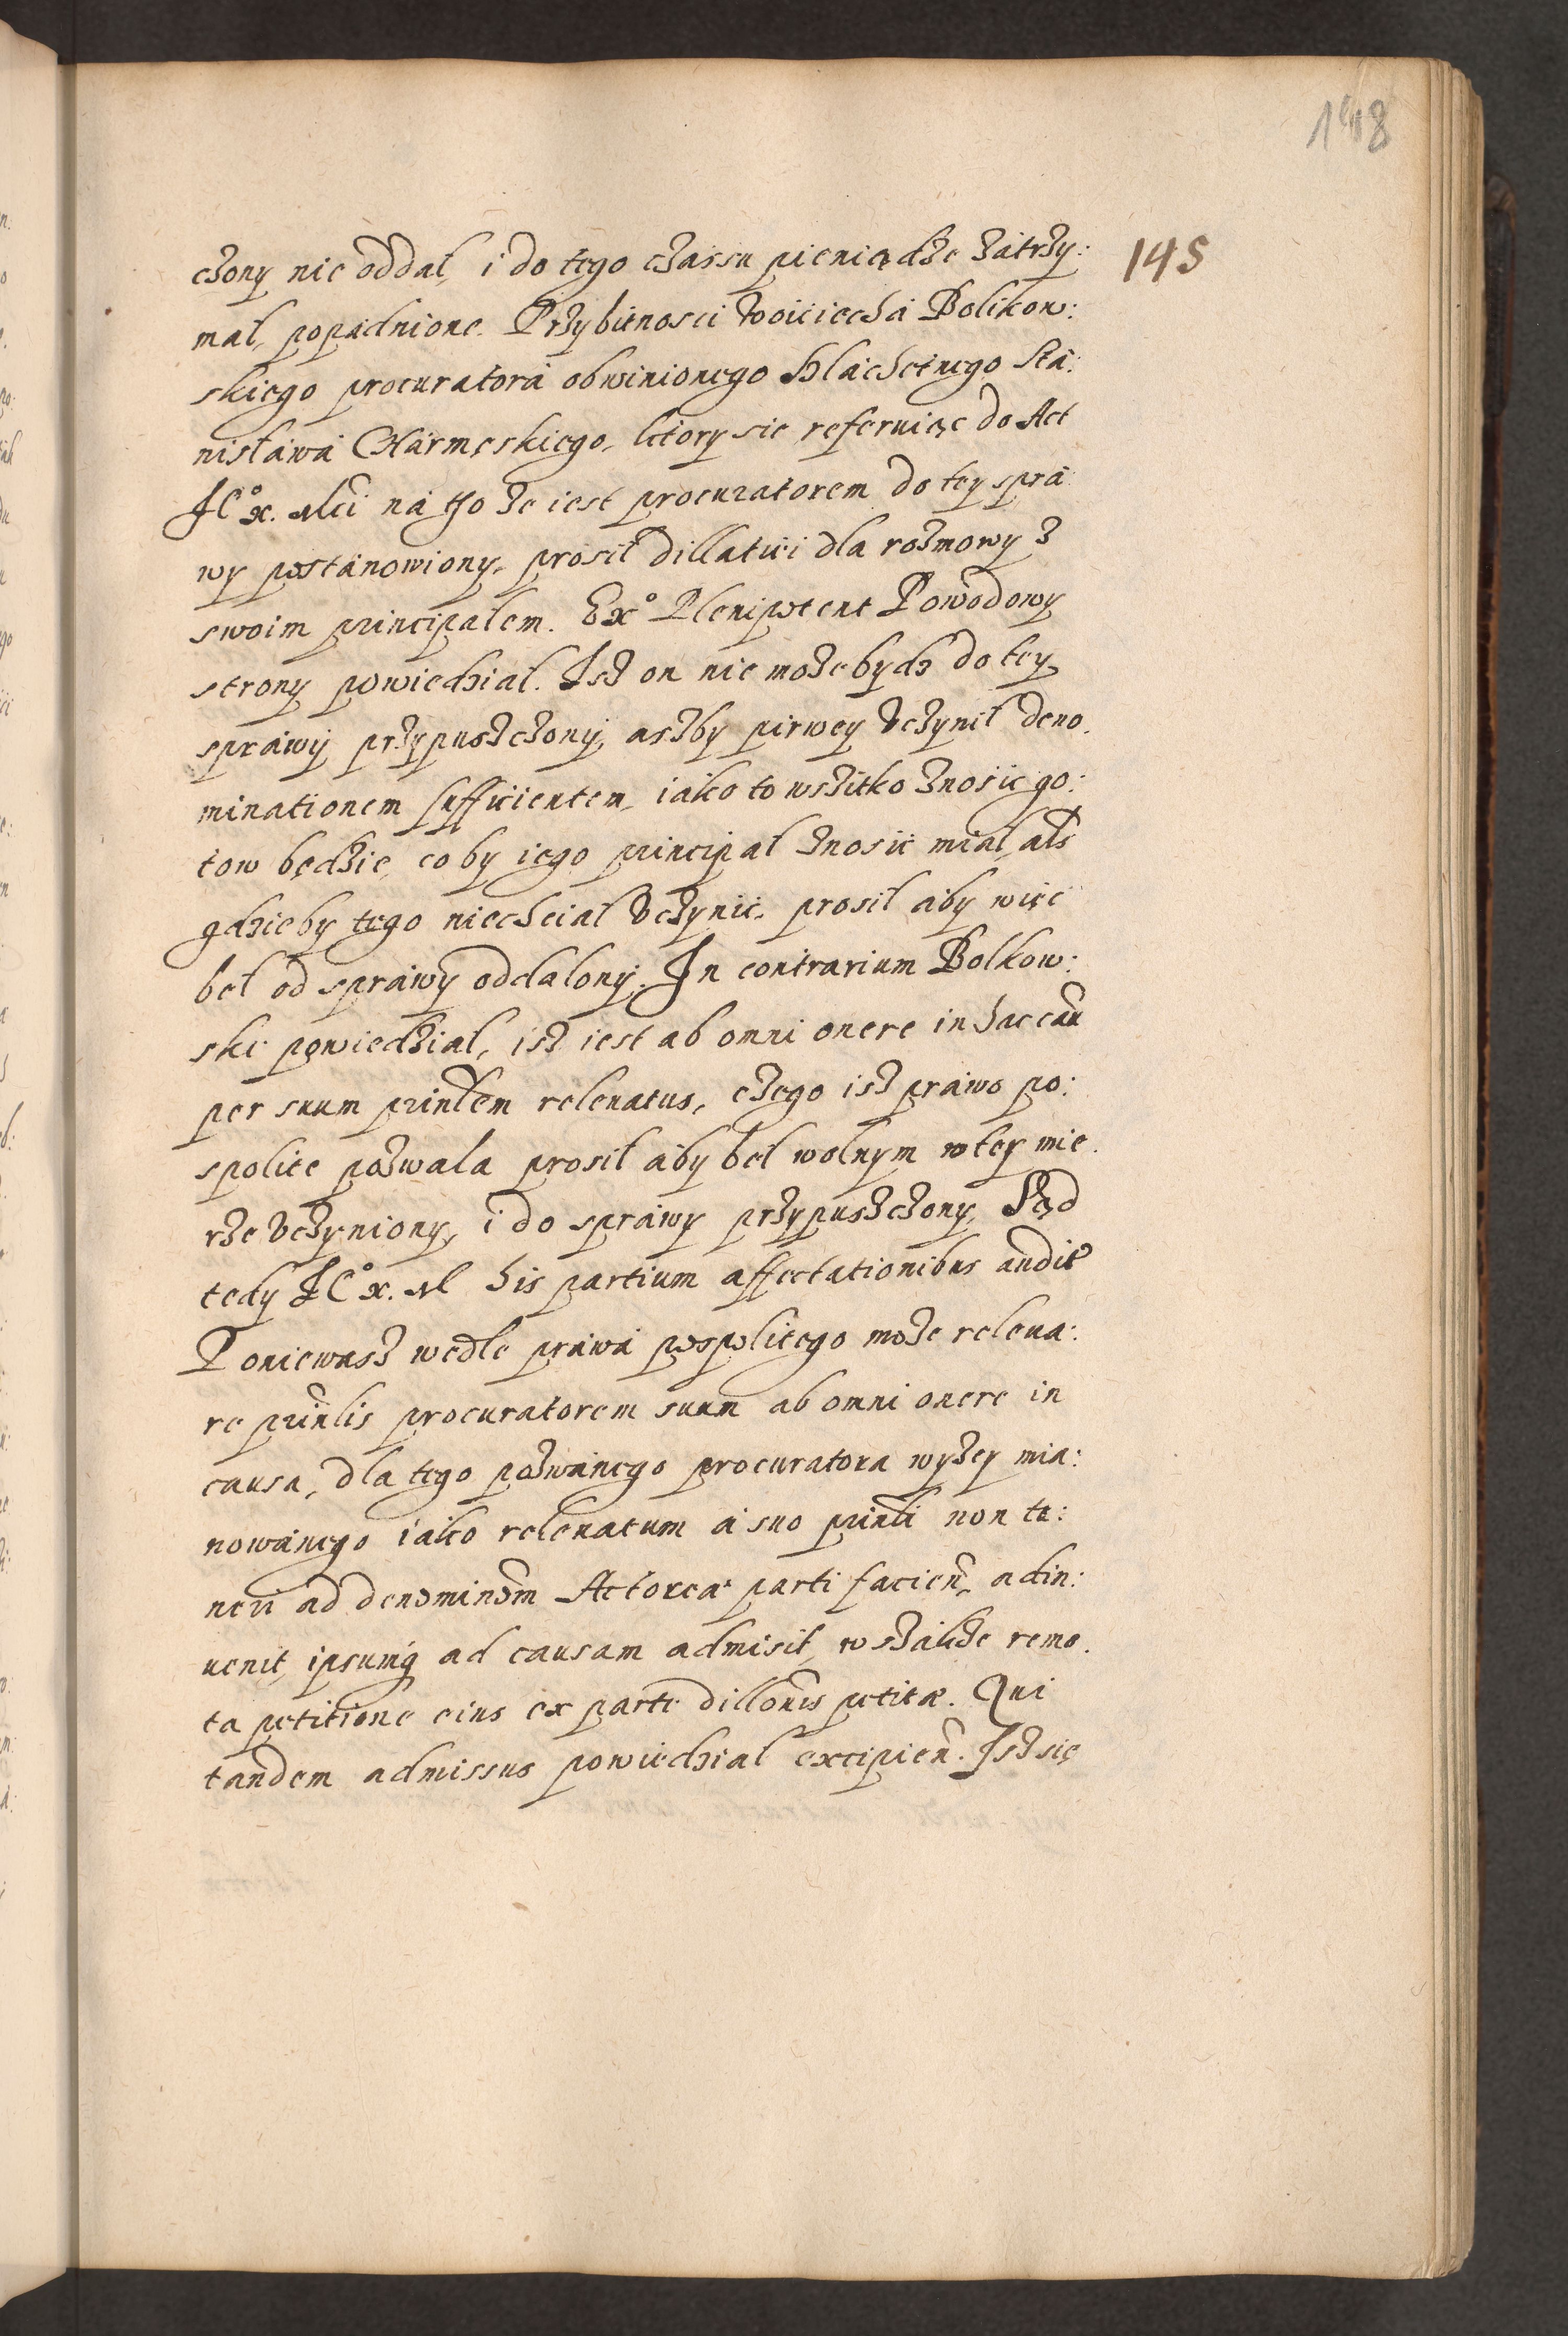 148
145
czony nie oddal, i do tego czassu pieniądze zátrzy:
mal, popádnione. Przy bitnosci Woiciecha Bolikow:
skiego procuratorá obwinionego Szláchetnego Stá:
nisłáwá Chármęskiego, ktory sie referuiąc do Act
JCͦ x. Mći ná to ze iest procuratorem do tey sprá:
wy postánowiony, prosił dillatiei dla rozmowy z
swoim principalem. Exͦ Plenipotent Powodowy
strony powiedział. Isz on nie może bydz do tey
spráwy przypuszczony, aszby pirwey Vczynił deno:
minationem sufficientem, iáko to wszitko znosić go:
tow będzie, co by iego principal znosić miał, ałe
gdzieby tego niechciał Vczynić, prosił áby więc
beł od spráwy oddalony. In contrarium Bolkow:
ski powiedział, isz iest ab omni onere in hac cau
per suum prinłem releuatus, czego isz práwo po:
spolite pozwala prosił áby beł wolnym w tey mie:
rze Vczyniony, i do spráwy przypuszczony, Sąd
tedy JCͦ x. M his partium affectationibus audit
Poniewasz wedle práwá pospolitego może releua:
re prinlis procuratorem suum ab omni onere in
causa, dla tego pozwánego procuratora wyżey mia:
nowánego iáko releuatum á suo prinłi non te:
neri ad denominoem Actorea parti facień, adin:
uenit, ipsumq ad causam admisit, wszákże remo:
ta petitione eius ex parte dillonis petitæ. Qui
tandem admissus powiedzial excipień. Isz się